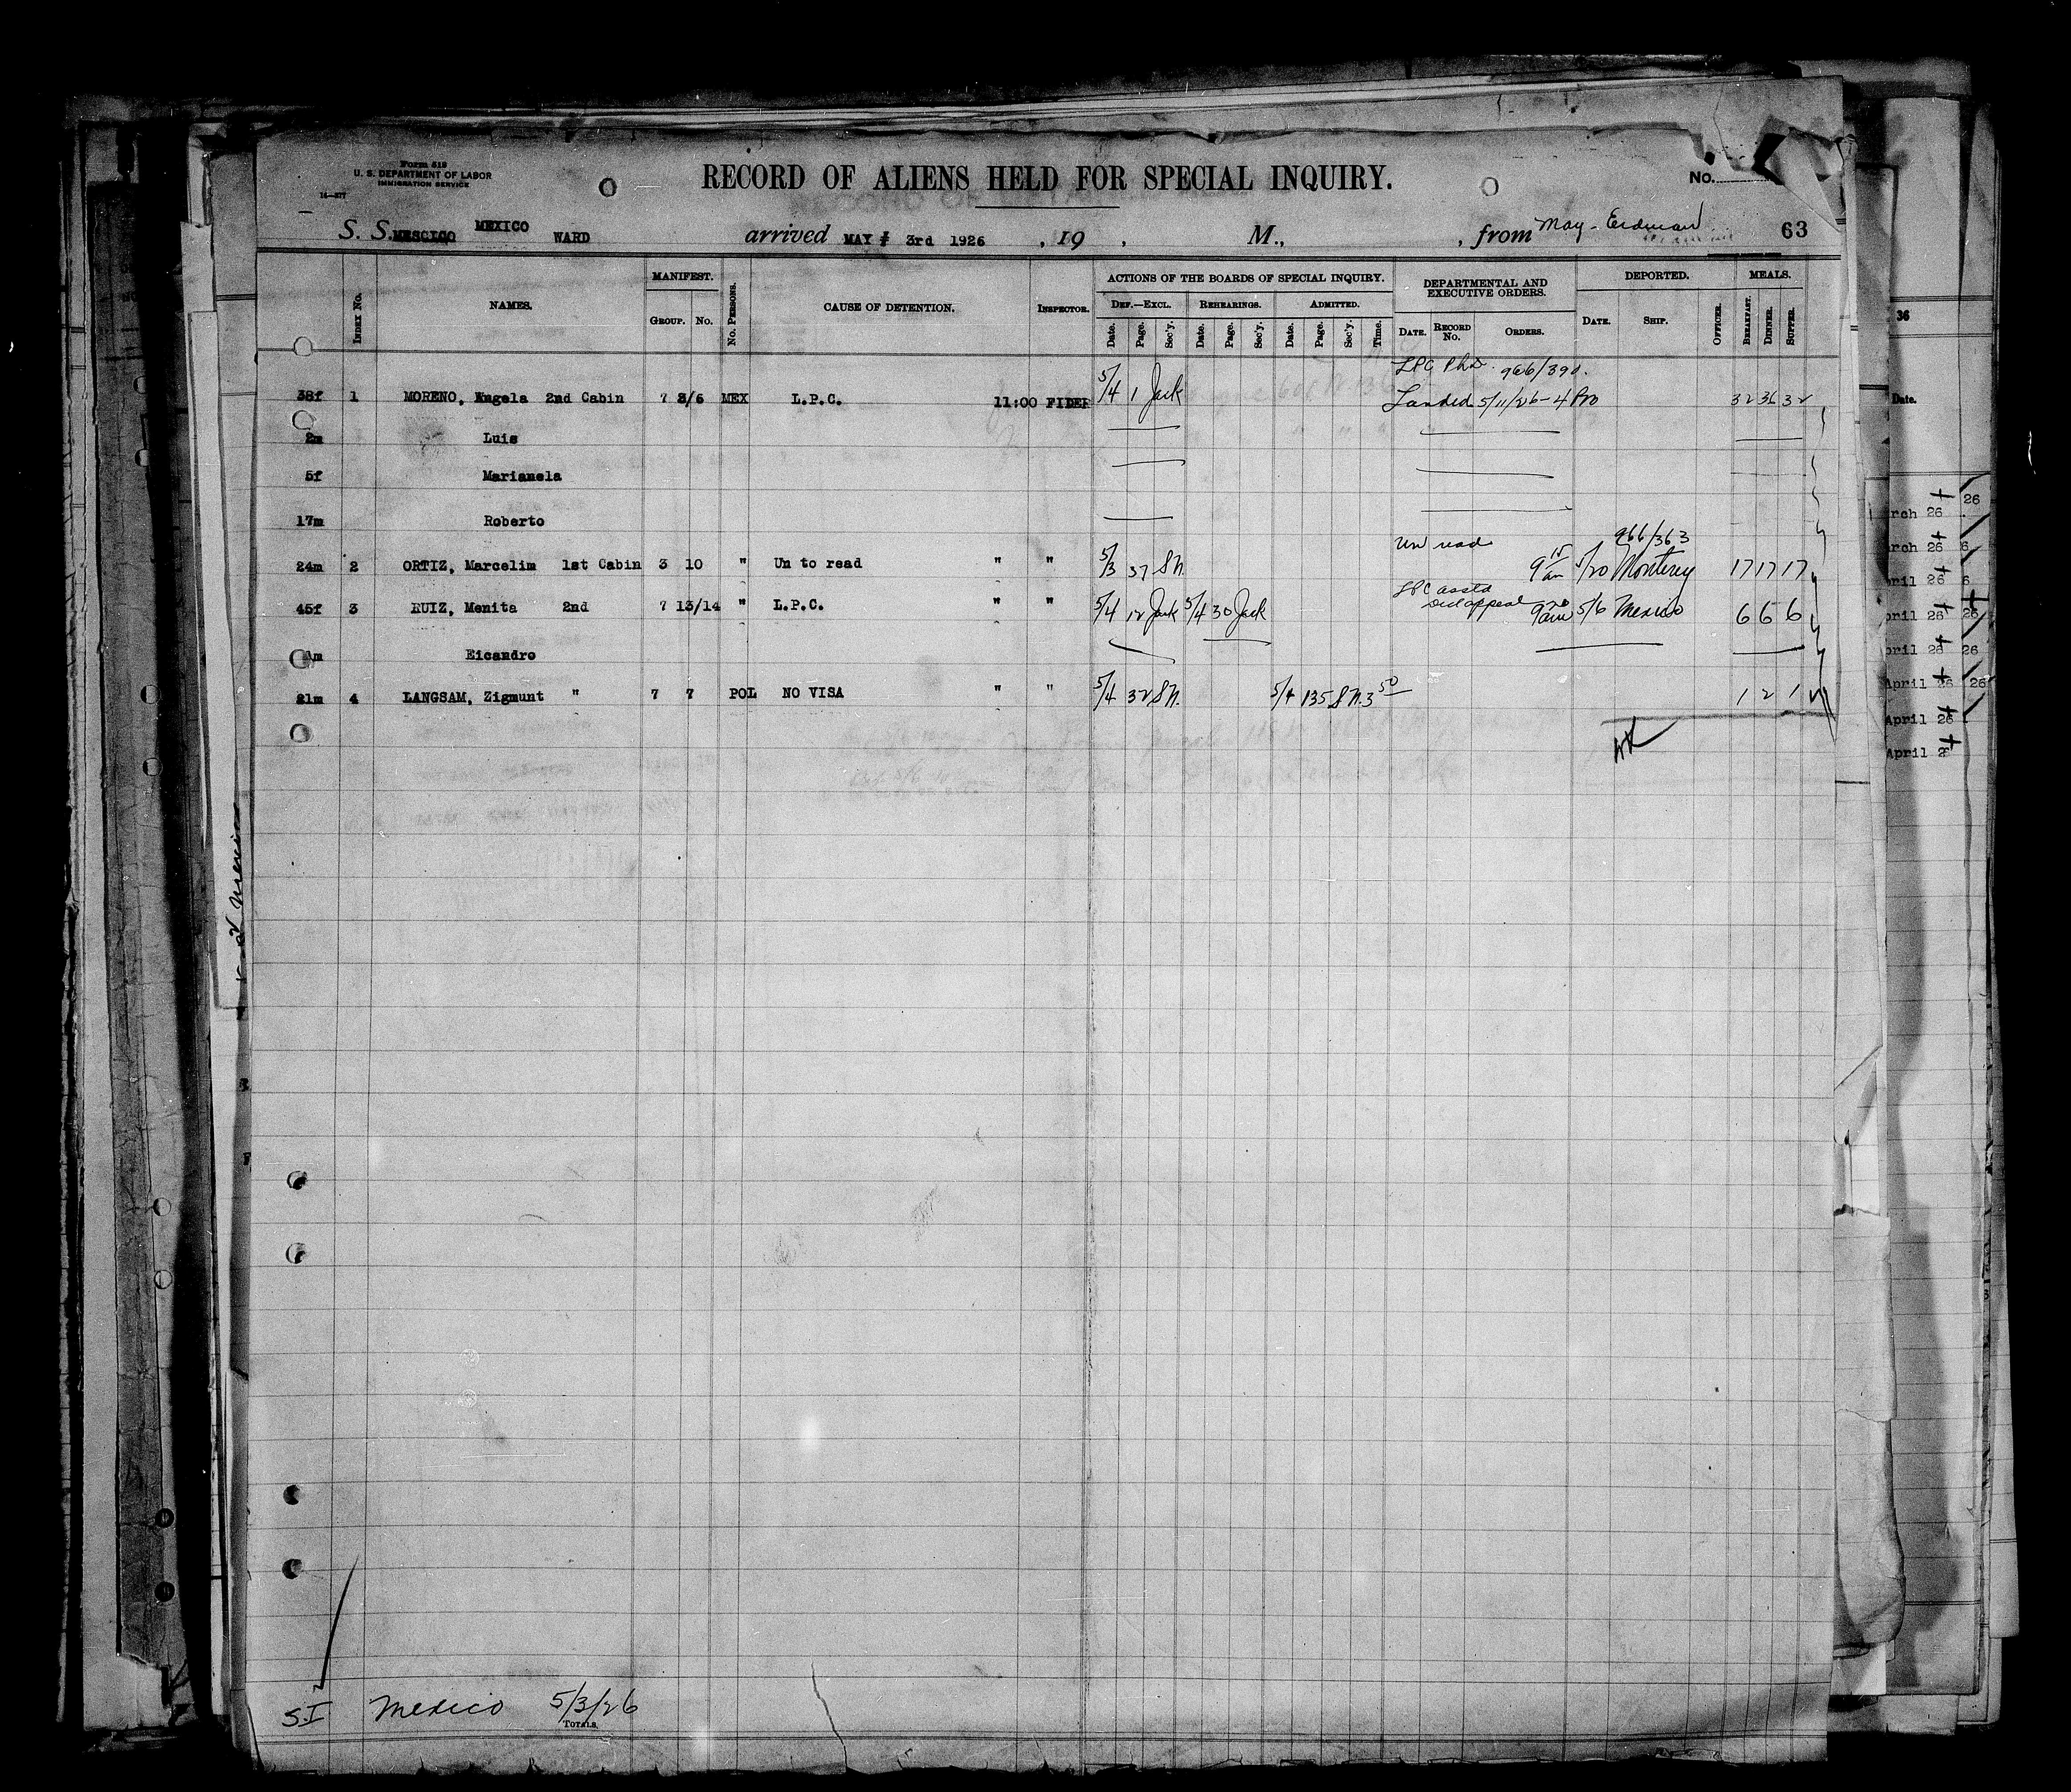 Form 519
U. S. DEPARTMENT OF LABOR
IMMIGRATION SERVICE
14—577
RECORD OF ALIENS HELD FOR SPECIAL INQUIRY.
No.
S. S. MESCICO MEXICO WARD arrived MAY 3rd 1926 , 19 , M., , from May - Erdman 63
INDEX NO. NAMES. MANIFEST. GROUP. NO. NO. PERSONS. CAUSE OF DETENTION. INSPECTOR. ACTIONS OF THE BOARDS OF SPECIAL INQUIRY. DEPARTMENTAL AND EXECUTIVE ORDERS. DEPORTED. MEALS.
DEF.—EXCL. REHEARINGS. ADMITTED.
Date. Page. Sec'y. Date. Page. Sec'y. Date. Page. Sec'y. Time. DATE. RECORD NO. ORDERS. DATE. SHIP. OFFICER. BREAKFAST. DINNER. SUPPER.
LPC 966/390.
38f 1 MORENO, Angela 2nd Cabin 7 3/6 MEX L.P.C. 11:00 FIDER 5/4 1 Jack Landed 5/11/26 - 4 32 36 32
2m Luis
5f Marianela
17m Roberto
Un read 966/363
24m 2 ORTIZ, Marcelim 1st Cabin 3 10 " Un to read " " 5/3 37 SN. 9 15 am 5/20 Monterey 17 17 17
LPC
appeal
45f 3 RUIZ, Menita 2nd 7 13/14 " L.P.C. " " 5/4 12 Jack 5/4 30 Jack 9 am 5/6 Mexico 6 6 6
Eicandro
21m 4 LANGSAM, Zigmunt " 7 7 POL NO VISA " " 5/4 32 SN. 5/4 135 SN. 3 50 1 2 1
S.I Mexico 5/3/26
TOTALS.
36
Date.
rch 26
26
rch 26
6
pril 26
6
pril 26
26
pril 26
26
April 26
26
April 26
April 26